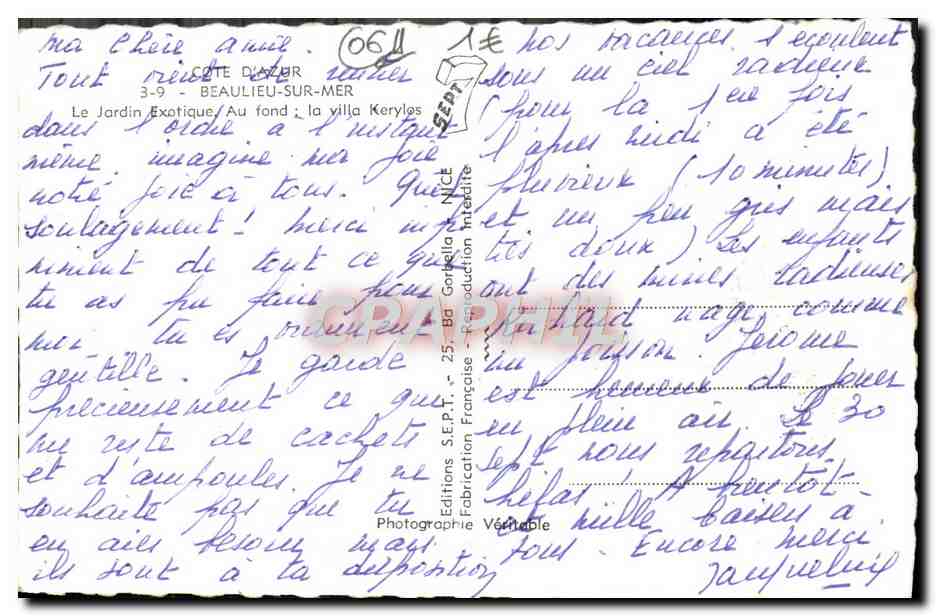 Ma Chère amie.
Tout vient de rentrer
dans l'ordre à l'instant
même. imagine ma joie
notre joie à tous. Quel
soulagement! Merci infi-
niment de tout ce que
tu as pu faire pour
moi tu es vraiment
gentille. Je garde
précieusement ce qui
me reste de cachets
et d'ampoules. Je ne
souhaite pas que tu
en aies besoin mais
ils sont à ta disposition
Nos vacances s'écoulent
sous un ciel radieux
(pour la 1ère fois
l'après midi a été
pluvieux (10 minutes)
et un peu gris mais
très doux) Les enfants
ont des mines radieuses
Richard nage comme
un poisson. Jérôme
est heureux de jouer
en plein air. Le 30
sept nous repartons
hélas! A bientôt
et mille baisers à
tous. Encore merci
Jacqueline
06
1€
COTE D'AZUR
3-9 - BEAULIEU-SUR-MER
Le Jardin Exotique. Au fond : la villa Kerylos
SEPT
Editions S.E.P.T. - 25, Bd Gorbella, NICE
Fabrication Française - Reproduction Interdite
Photographie Véritable
CPAPHIL